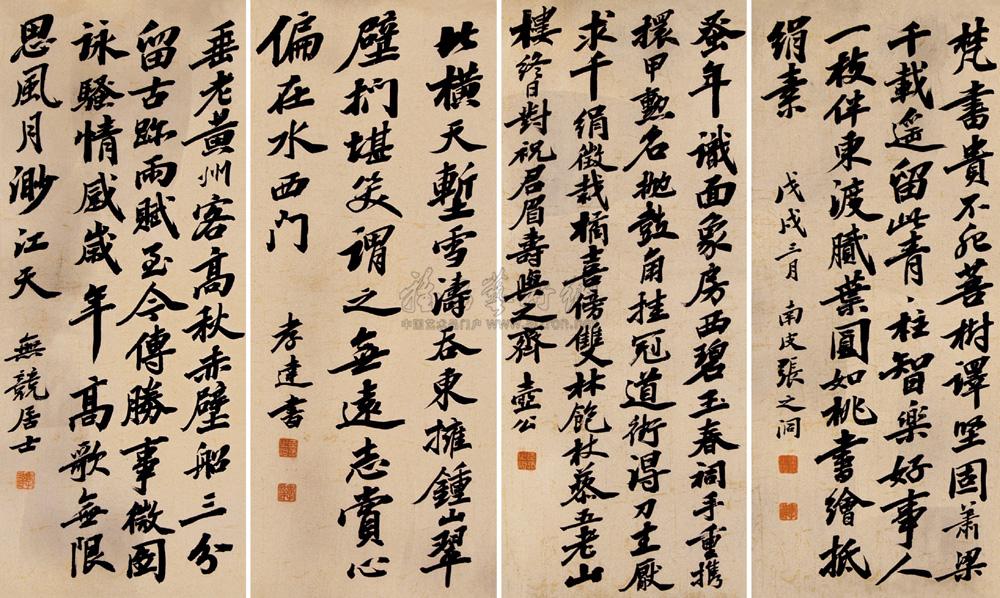 梵書貴不死菩樹譯堅固蕭梁
千載遥留此青柱智樂好事人
一枝伴東渡膩葉圓如桃書繪抵
絹素
戊戌三月 南皮張之洞
蚤年識面象房西碧玉春祠手重攜
擐甲勲名抛鼓角挂冠道術得刀圭厭
求千絹徵栽橘喜傍雙林飽杖藜五老山
樓終日對祝君眉壽與之齊 壺公
北横天塹雪濤吞東擁鍾山翠
壁捫堪笑謂之無遠志賞心
偏在水西門
孝達書
垂老黃州客高秋赤壁船三分
留古跡兩賦至今傳勝事徵圖
詠騷情感歲年高歌無限
思風月渺江天 無競居士